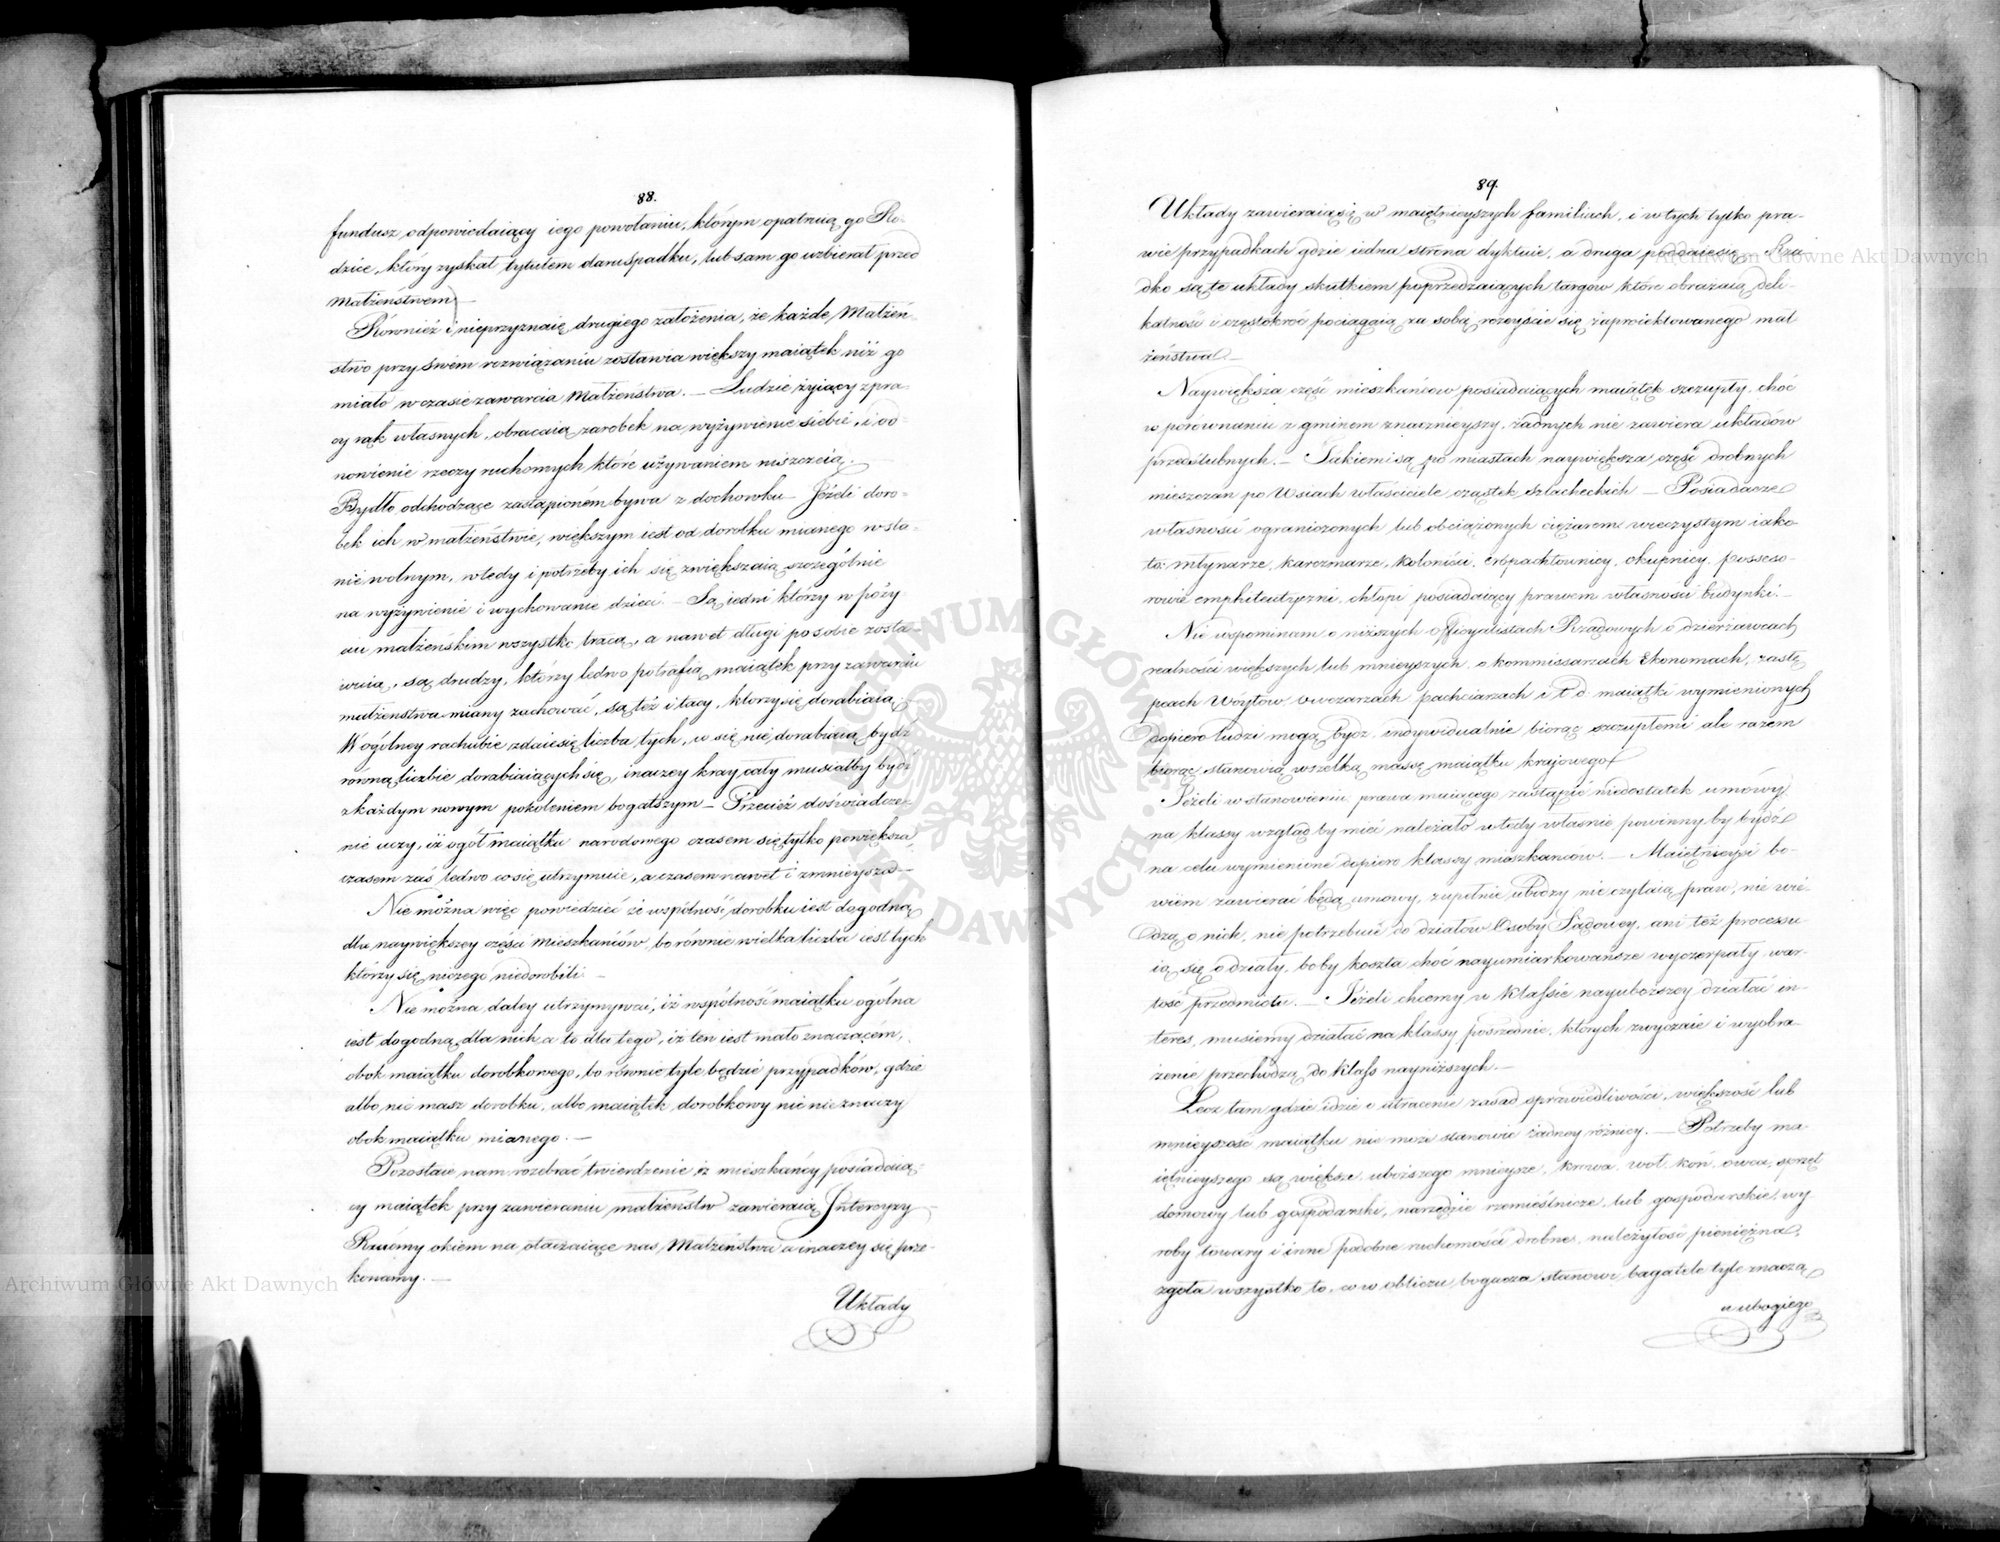 88.
fundusz odpowiedaiący iego powołaniu, którym opatruią go Ro-
dzice, który zyskał tytułem daru spadku, lub sam go uzbierał przed
Małżeństwem. —
Również i nieprzyznaię drugiego założenia, że każde Małżeń-
stwo przy swém rozwiązaniu zostawia większy maiątek niż go
miało w czasie zawarcia Małżeństwa. — Ludzie żyiący z pra-
cy rąk własnych, obracaią zarobek na wyżywienie siebie, i od-
nowienie rzeczy ruchomych które używaniem niszczeią. —
Bydło odchodzące zastąpioném bywa z dochowku — Jeżeli doro-
bek ich w małżeństwie, większym iest od dorobku mianego w sta-
nie wolnym, wtedy i potrzeby ich się zwiększaią szczególnie
na wyżywienie i wychowanie dzieci. — Są iedni którzy w poży-
ciu małżeńskim wszystko tracą, a nawet długi po sobie zosta-
wuią, są drudzy, którzy ledwo potrafią maiątek przy zawarciu
małżenstwa miany zachować, są też i tacy, ktorzy się dorabiaią.
W ogólney rachubie zdaie się liczba tych, co się nie dorabiaią bydź
równą liczbie dorabiaiących się, inaczey kray cały musiałby bydź
z każdym nowym pokoleniem bogatszym — Przecież doświadcze-
nie uczy, iż ogół maiątku narodowego czasem się tylko powiększa
czasem zaś ledwo co się utrzymuie, a czasem nawet i zmnieysza —
Nie można więc powiedzieć że wspólność dorobku iest dogodną
dla naywiększey części mieszkańców, bo równie wielka liczba iest tych
którzy się niczego niedorobili. —
Nie można daley utrzymywać, iż wspólność maiątku ogólna
iest dogodną dla nich a to dla tego, iż ten iest mało znaczącém,
obok maiątku dorobkowego, bo równie tyle będzie przypadków, gdzie
albo nie masz dorobku, albo maiątek dorobkowy nic nie znaczy
obok maiątku mianego. —
Pozostaie nam rozebrać twierdzenie iż mieszkańcy posiadaią-
cy maiątek przy zawieraniu małżeństw zawieraią Intercyzy —
Rzućmy okiem na otaczaiące nas Małżeństwa a inaczey się prze-
konamy. —
Układy
89.
Układy zawieraią się w maiętnieyszych familiach, i w tych tylko pra-
wie przypadkach gdzie iedna strona dyktuie, a druga poddaie się. Rza-
dko są te układy skutkiem poprzedzaiących targów które obrażaią deli-
katność i częstokroć pociągaią za sobą rozeyście się zaproiektowanego mał
żeństwa —
Naywiększa część mieszkańców posiadaiących maiątek szczupły, choć
w porównaniu z gminem znacznieyszy, żadnych nie zawiera układów
przedślubnych. — Takiemi są po miastach naywiększa część drobnych
mieszczan po Wsiach właściciele cząstek szlacheckich — Posiadacze
własności ograniczonych lub obciążonych ciężarem wieczystym iako
to: młynarze, karczmarze, koloniści, erbpachtownicy, okupnicy, possesso-
rowie emphiteutyczni, chłopi posiadaiący prawem własności budynki. —
Nie wspominam o niższych Officyalistach Rządowych o dzierżawcach
realności większych lub mnieyszych, o kommissarzach Ekonomach, zastę
pcach Wóytów, owczarzach pachciarzach i t. d. maiątki wymienionych
dopiero ludzi mogą bydz indywidualnie biorąc szczupłemi ale razem
biorąc stanowią wszelką massę maiątku kraiowego.
Jeżeli w stanowieniu prawa maiącego zastąpić niedostatek umowy,
na klassy wzgląd by mieć należało wtedy własnie powinny by bydź
na celu wymienione dopiero klassy mieszkańców. — Maiętnieysi bo-
wiem zawierać będą umowy, zupełnie ubodzy nie czytaią praw, nie wie-
dzą o nich, nie potrzebuią do działów Osoby Sądowey, ani też processu-
ią się o działy, boby koszta choć nayumiarkowańsze wyczerpały war-
tość przedmiotu. — Jeżeli chcemy w klassie nayuboższey działać in-
teres, musiemy działać na klassy pośrednie, których zwyczaie i wyobra-
żenie przechodzą do klass nayniższych. —
Lecz tam gdzie idzie o utracenie zasad sprawiedliwości, większość lub
mnieyszość maiątku nie może stanowić żadney różnicy. — Potrzeby ma-
iętnieyszego są większe, uboższego mnieysze, krowa, woł, koń, owca, sprzęt
domowy lub gospodarski, narzędzie rzemieślnicze, lub gospodarskie, wy
roby towary i inne podobne ruchomości drobne, należytość pieniężna,
zgoła wszystko to, co w obliczu bogacza stanowi bagatele tyle znaczą
u ubogiego